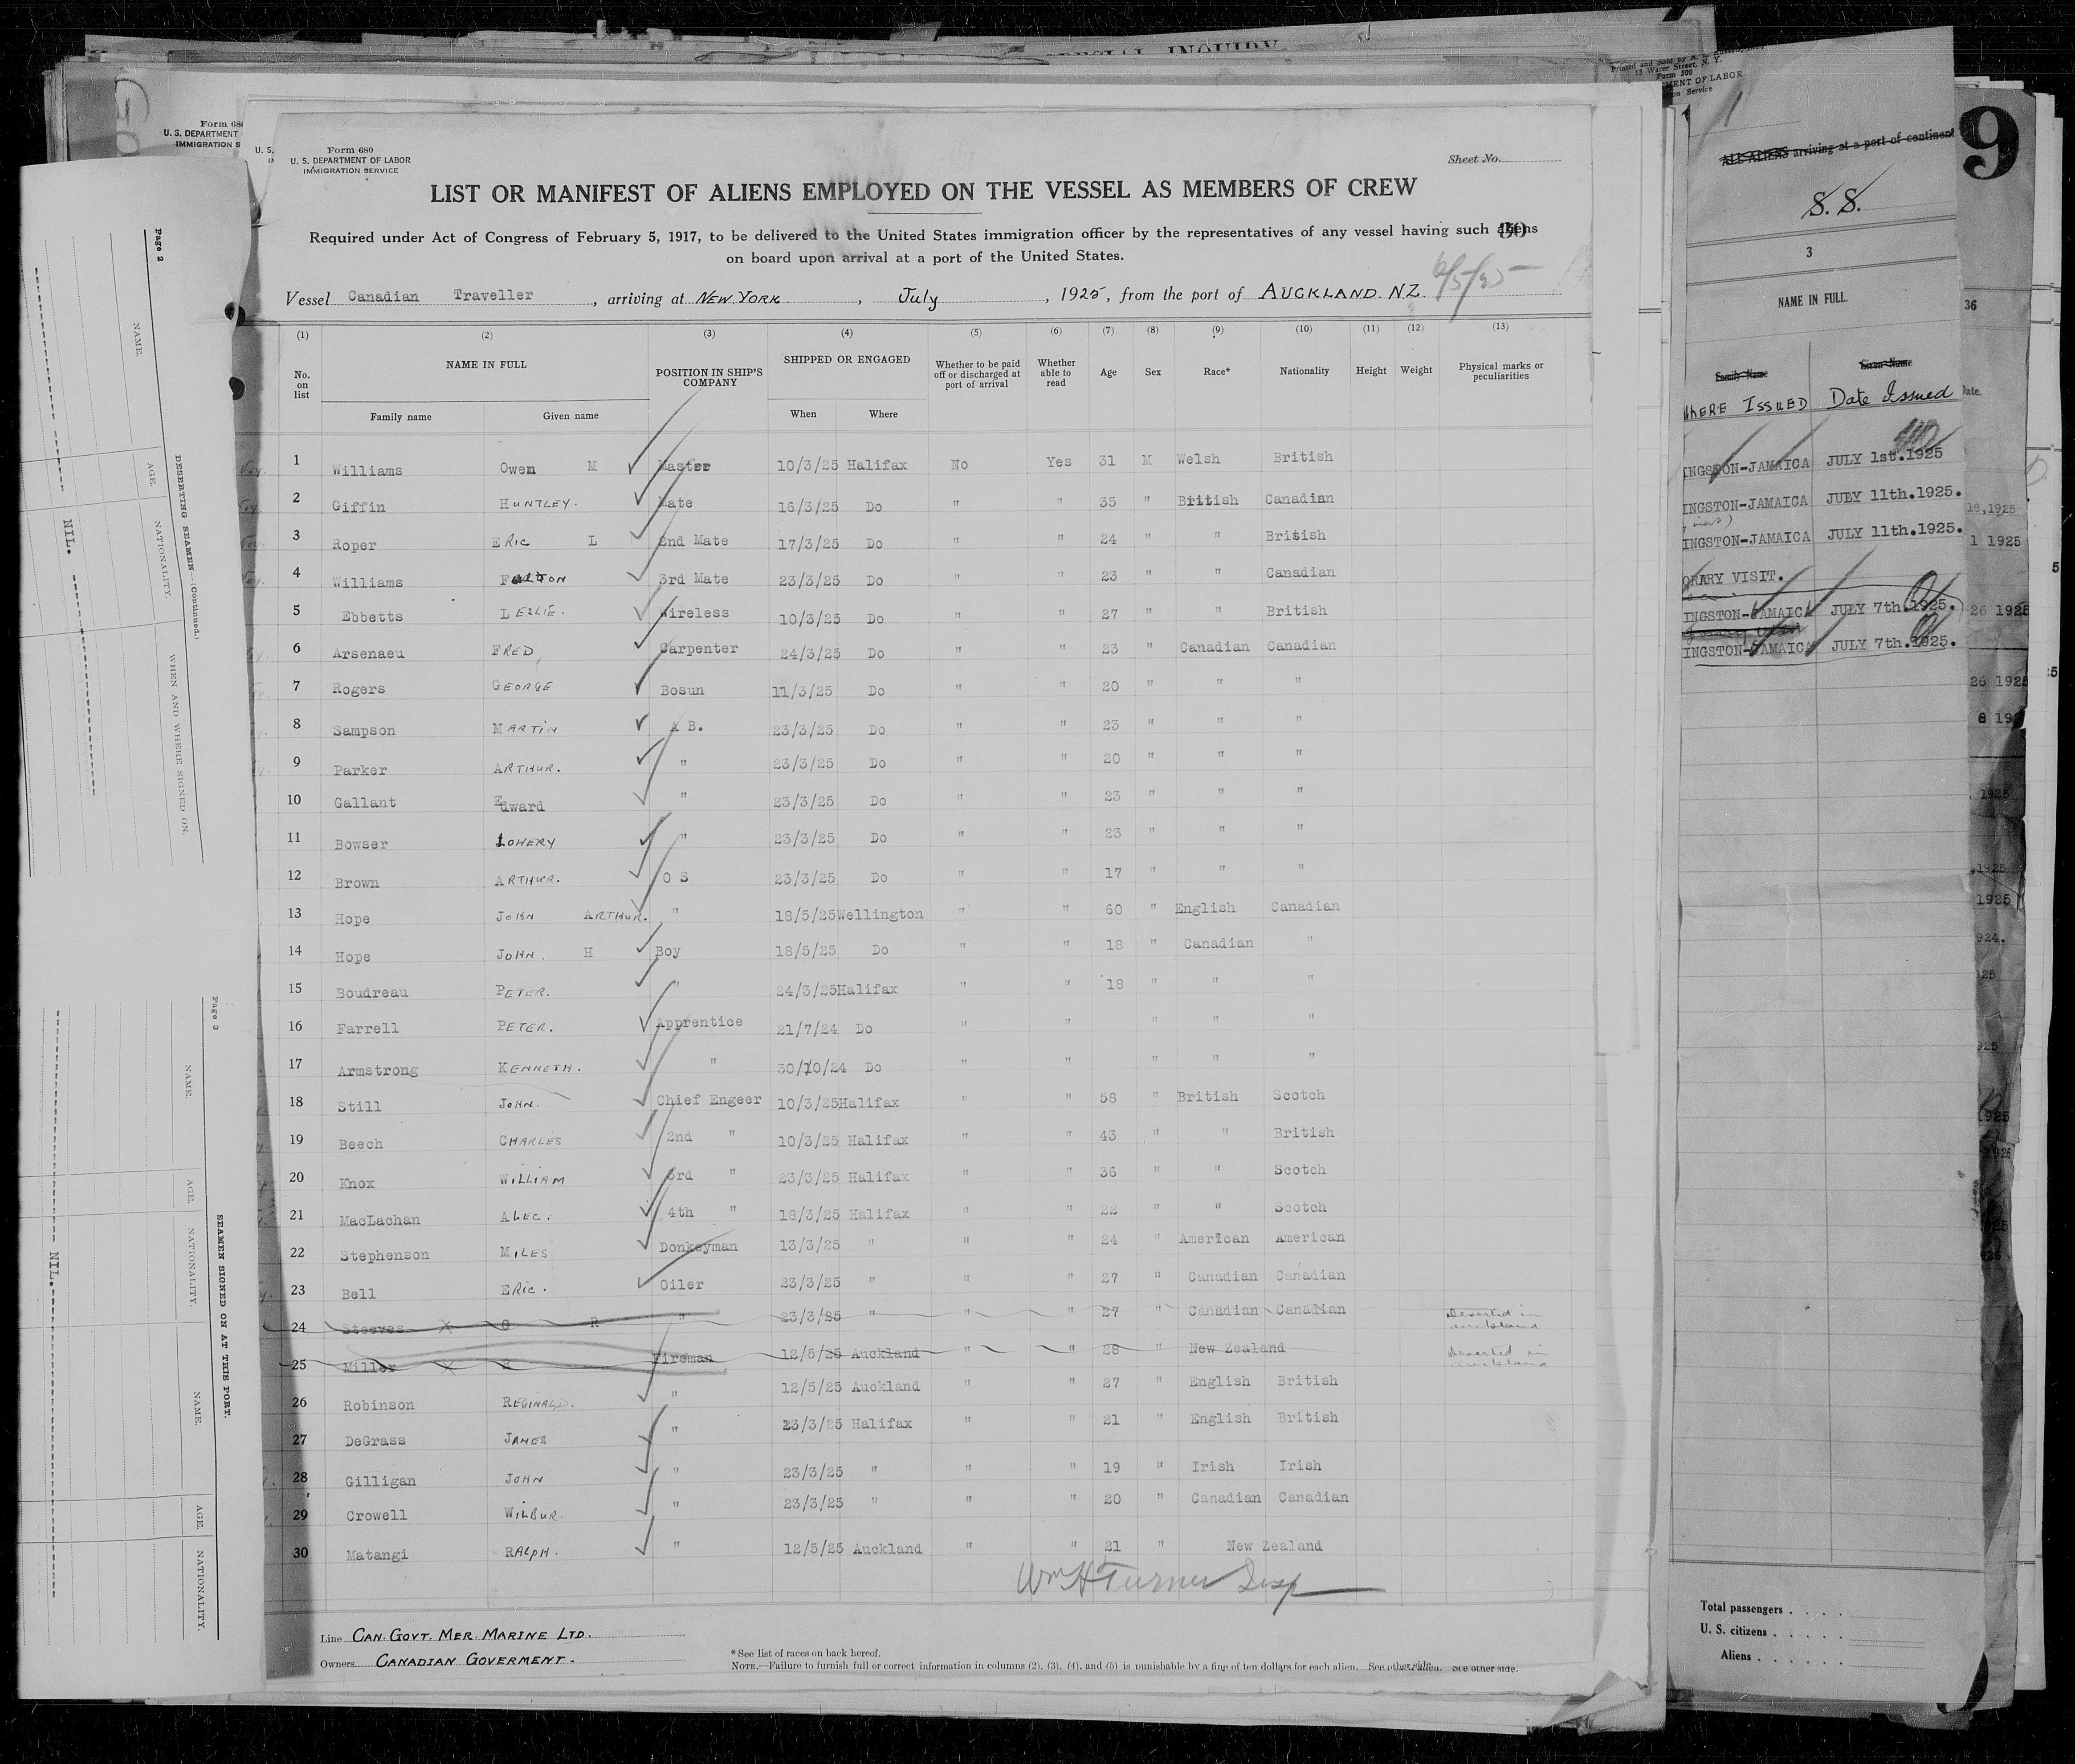 SPECIAL INQUIRY
Form 680
U. S. DEPARTMENT
IMMIGRATION S
Form 680
U. S. DEPARTMENT OF LABOR
IMMIGRATION SERVICE
Sheet No.
LIST OR MANIFEST OF ALIENS EMPLOYED ON THE VESSEL AS MEMBERS OF CREW
Required under Act of Congress of February 5, 1917, to be delivered to the United States immigration officer by the representatives of any vessel having such aliens
on board upon arrival at a port of the United States.
Vessel Canadian Traveller, arriving at NEW YORK, July, 1925, from the port of AUCKLAND. N.Z.
(1) (2) (3) (4) (5) (6) (7) (8) (9) (10) (11) (12) (13)
No. on list NAME IN FULL POSITION IN SHIP'S COMPANY SHIPPED OR ENGAGED Whether to be paid off or discharged at port of arrival Whether able to read Age Sex Race* Nationality Height Weight Physical marks or peculiarities
Family name Given name When Where
1 Williams Owen M Master 10/3/25 Halifax No Yes 31 M Welsh British
2 Giffin HUNTLEY. Mate 16/3/25 Do " " 35 " British Canadian
3 Roper ERIC L 2nd Mate 17/3/25 Do " " 24 " " British
4 Williams FULTON 3rd Mate 23/3/25 Do " " 23 " " Canadian
5 Ebbetts LESLIE. Wireless 10/3/25 Do " " 27 " " British
6 Arsenaeu FRED Carpenter 24/3/25 Do " " 23 " Canadian Canadian
7 Rogers GEORGE Bosun 11/3/25 Do " " 20 " " "
8 Sampson MARTIN A B. 23/3/25 Do " " 23 " " "
9 Parker ARTHUR. " 23/3/25 Do " " 20 " " "
10 Gallant Edward " 23/3/25 Do " " 23 " " "
11 Bowser LOWERY " 23/3/25 Do " " 23 " " "
12 Brown ARTHUR. O S 23/3/25 Do " " 17 " " "
13 Hope JOHN ARTHUR. " 18/5/25 Wellington " " 60 " English Canadian
14 Hope JOHN. H Boy 18/5/25 Do " " 18 " Canadian "
15 Boudreau PETER. " 24/3/25 Halifax " " 18 " " "
16 Farrell PETER. Apprentice 21/7/24 Do " " " " "
17 Armstrong KENNETH. " 30/10/24 Do " " " " "
18 Still JOHN. Chief Engeer 10/3/25 Halifax " " 58 " British Scotch
19 Beech CHARLES 2nd " 10/3/25 Halifax " " 43 " " British
20 Knox WILLIAM 3rd " 23/3/25 Halifax " " 36 " " Scotch
21 MacLachan ALEC. 4th " 18/3/25 Halifax " " 22 " " Scotch
22 Stephenson MILES Donkeyman 13/3/25 " " " 24 " American American
23 Bell ERIC. Oiler 23/3/25 " " " 27 " Canadian Canadian
24 Steeves X G R " 23/3/25 " " " 27 " Canadian Canadian Deserted in auckland
25 Miller X Fireman 12/5/25 Auckland " " 28 " New Zealand Deserted in auckland
26 Robinson REGINALD. " 12/5/25 Auckland " " 27 " English British
27 DeGrass JAMES " 23/3/25 Halifax " " 21 " English British
28 Gilligan JOHN " 23/3/25 " " " 19 " Irish Irish
29 Crowell WILBUR. " 23/3/25 " " " 20 " Canadian Canadian
30 Matangi RALPH. " 12/5/25 Auckland " " 21 " New Zealand
Wm H Turner Insp
Line CAN. GOVT. MER. MARINE LTD.
Owners CANADIAN GOVERMENT.
*See list of races on back hereof.
NOTE.—Failure to furnish full or correct information in columns (2), (3), (4), and (5) is punishable by a fine of ten dollars for each alien. See other side.
Page 2
DESERTING SEAMEN—(Continued.)
NAME. AGE. NATIONALITY. WHEN AND WHERE SIGNED ON.
NIL.
Page 3
SEAMEN SIGNED ON AT THIS PORT.
NAME. AGE. NATIONALITY. NAME. AGE. NATIONALITY.
NIL.
Printed and Sold by
Water Street, N. Y.
Form 500
MENT OF LABOR
on Service
ALL ALIENS arriving at a port of continent
S. S.
3
NAME IN FULL.
Family Name Given Name
WHERE ISSUED Date Issued
INGSTON-JAMAICA JULY 1st.1925
INGSTON-JAMAICA JULY 11th.1925.
INGSTON-JAMAICA JULY 11th.1925.
ORARY VISIT.
INGSTON-JAMAICA JULY 7th.1925.
INGSTON-JAMAICA JULY 7th.1925.
Total passengers
U. S. citizens
Aliens
9
36
Date.
18,1925
1 1925
26 1925
26 1925
1925
1925
1925
924.